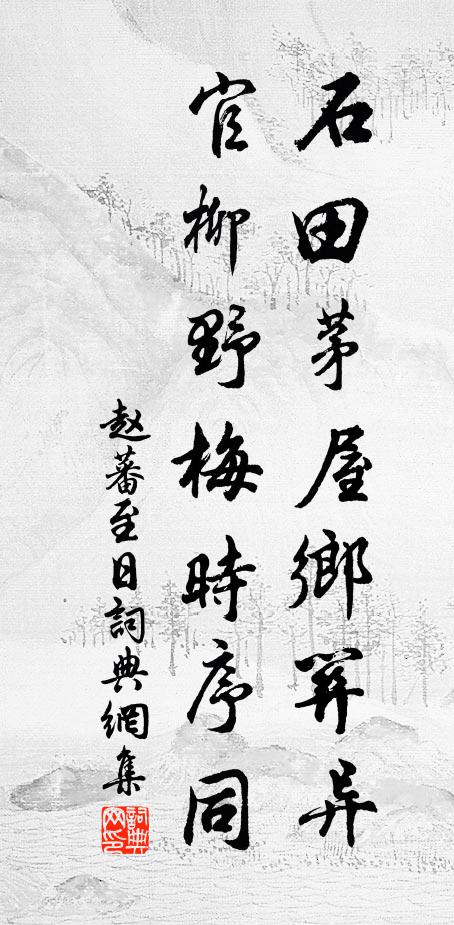 石田茅屋鄉關异
官柳野梅時序同
赵蕃至日詞典網集
詞典
网印